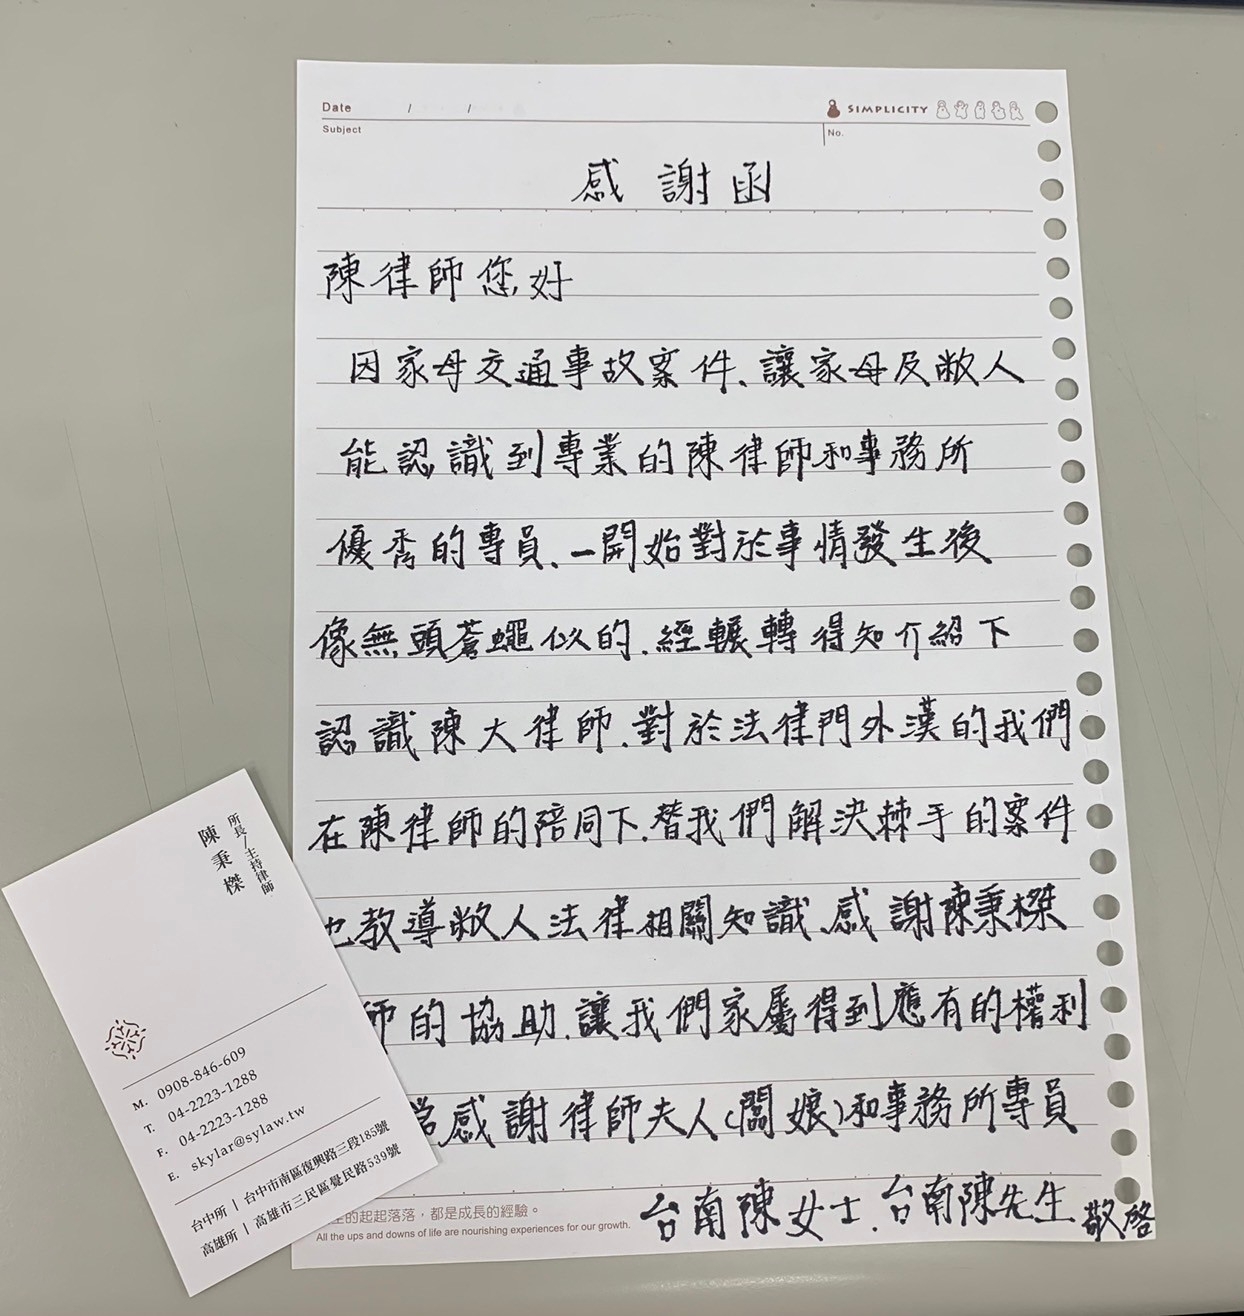 Date / /
SIMPLICITY
Subject
No.
感謝函
陳律師您好
因家母交通事故案件、讓家母及敝人
能認識到專業的陳律師和事務所
優秀的專員、一開始對於事情發生後
像無頭蒼蠅似的、經輾轉得知介紹下
認識陳大律師、對於法律門外漢的我們
在陳律師的陪同下、替我們解決棘手的案件
也教導敝人法律相關知識、感謝陳秉榤
師的協助、讓我們家屬得到應有的權利
感謝律師夫人(闆娘)和事務所專員
台南陳女士、台南陳先生 敬啓
生的起起落落,都是成長的經驗。
All the ups and downs of life are nourishing experiences for our growth.
所長/主持律師
陳秉榤
M. 0908-846-609
T. 04-2223-1288
F. 04-2223-1288
E. skylar@sylaw.tw
台中所 | 台中市南區復興路三段185號
高雄所 | 高雄市三民區覺民路539號